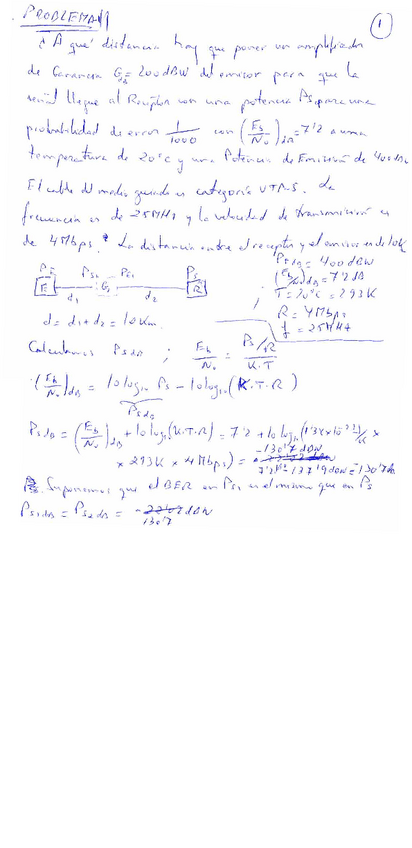 PROBLEMA 1
①
¿A qué distancia hay que poner un amplificador
de Ganancia G₂= 200dBW del emisor para que la
señal llegue al Receptor con una potencia Ps para una
probabilidad de error 1/1000 con (Eb/N₀)dB=7'2 a una
temperatura de 20°C y una Potencia de Emisión de 400dBW
El cable del medio guiado es categoría UTP-5. La
frecuencia es de 25MHz y la velocidad de transmisión es
de 4Mbps. La distancia entre el receptor y el emisor es de 10K
PE dB = 400dBW
PE PS1 PE1 PS
(Eb/N₀)dB = 7'2dB
E G₂ R
T=20°C = 293K
d₁ d₂
R = 4Mbps
d = d₁+d₂ = 10Km.
f = 25MHz
Calculamos PsdB ; Eb/N₀ = Ps/R / K.T
(Eb/N₀)dB = 10log₁₀ Ps - 10log₁₀(K.T.R)
PsdB
PsdB = (Eb/N₀)dB + 10log₁₀(K.T.R) = 7'2 + 10log₁₀(1'38x10⁻²³J/K x
-130'7dBW
x 293K x 4Mbps) = 7'2 - 137'9dBW = -130'7dB
Suponemos que el BER en Ps1 es el mismo que en Ps
Ps1dB = Ps2dB = -130'7 dBW